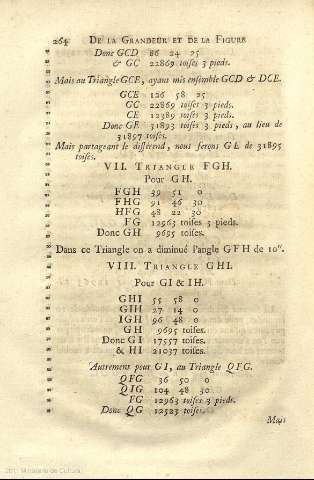 264 DE LA GRANDEUR ET DE LA FIGURE
Donc GCD 86 24 25
& GC 22869 toises 3 pieds.
Mais au Triangle GCE, ayans mis ensemble GCD & DCE.
GCE 126 58 25
GC 22869 toises 3 pieds.
CE 12389 toises 3 pieds.
Donc GE 31893 toises 3 pieds, au lieu de
31897 toises.
Mais partageant le différend, nous ferons GE de 31895
toises.
VII. TRIANGLE FGH.
Pour GH.
FGH 39 51 0
FHG 91 46 30
HFG 48 22 30
FG 12963 toises 3 pieds.
Donc GH 9695 toises.
Dans ce Triangle on a diminué l'angle GFH de 10".
VIII. TRIANGLE GHI.
Pour GI & IH.
GHI 55 58 0
GIH 27 14 0
IGH 96 48 0
GH 9695 toises.
Donc GI 17557 toises.
& HI 21037 toises.
Autrement pour GI, au Triangle QFG.
QFG 36 50 0
QIG 104 48 30
FG 12963 toises 3 pieds.
Donc QG 12523 toises.
Mais
Ministerio de Cultura